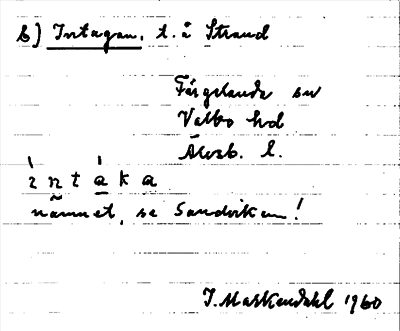 b) Intagan. t. å Strand
Färgelanda sn
Valbo hd
Älvsb. l.
ı̀ n t à k a
namnet, se Sandviken!
I. Markendahl 1960